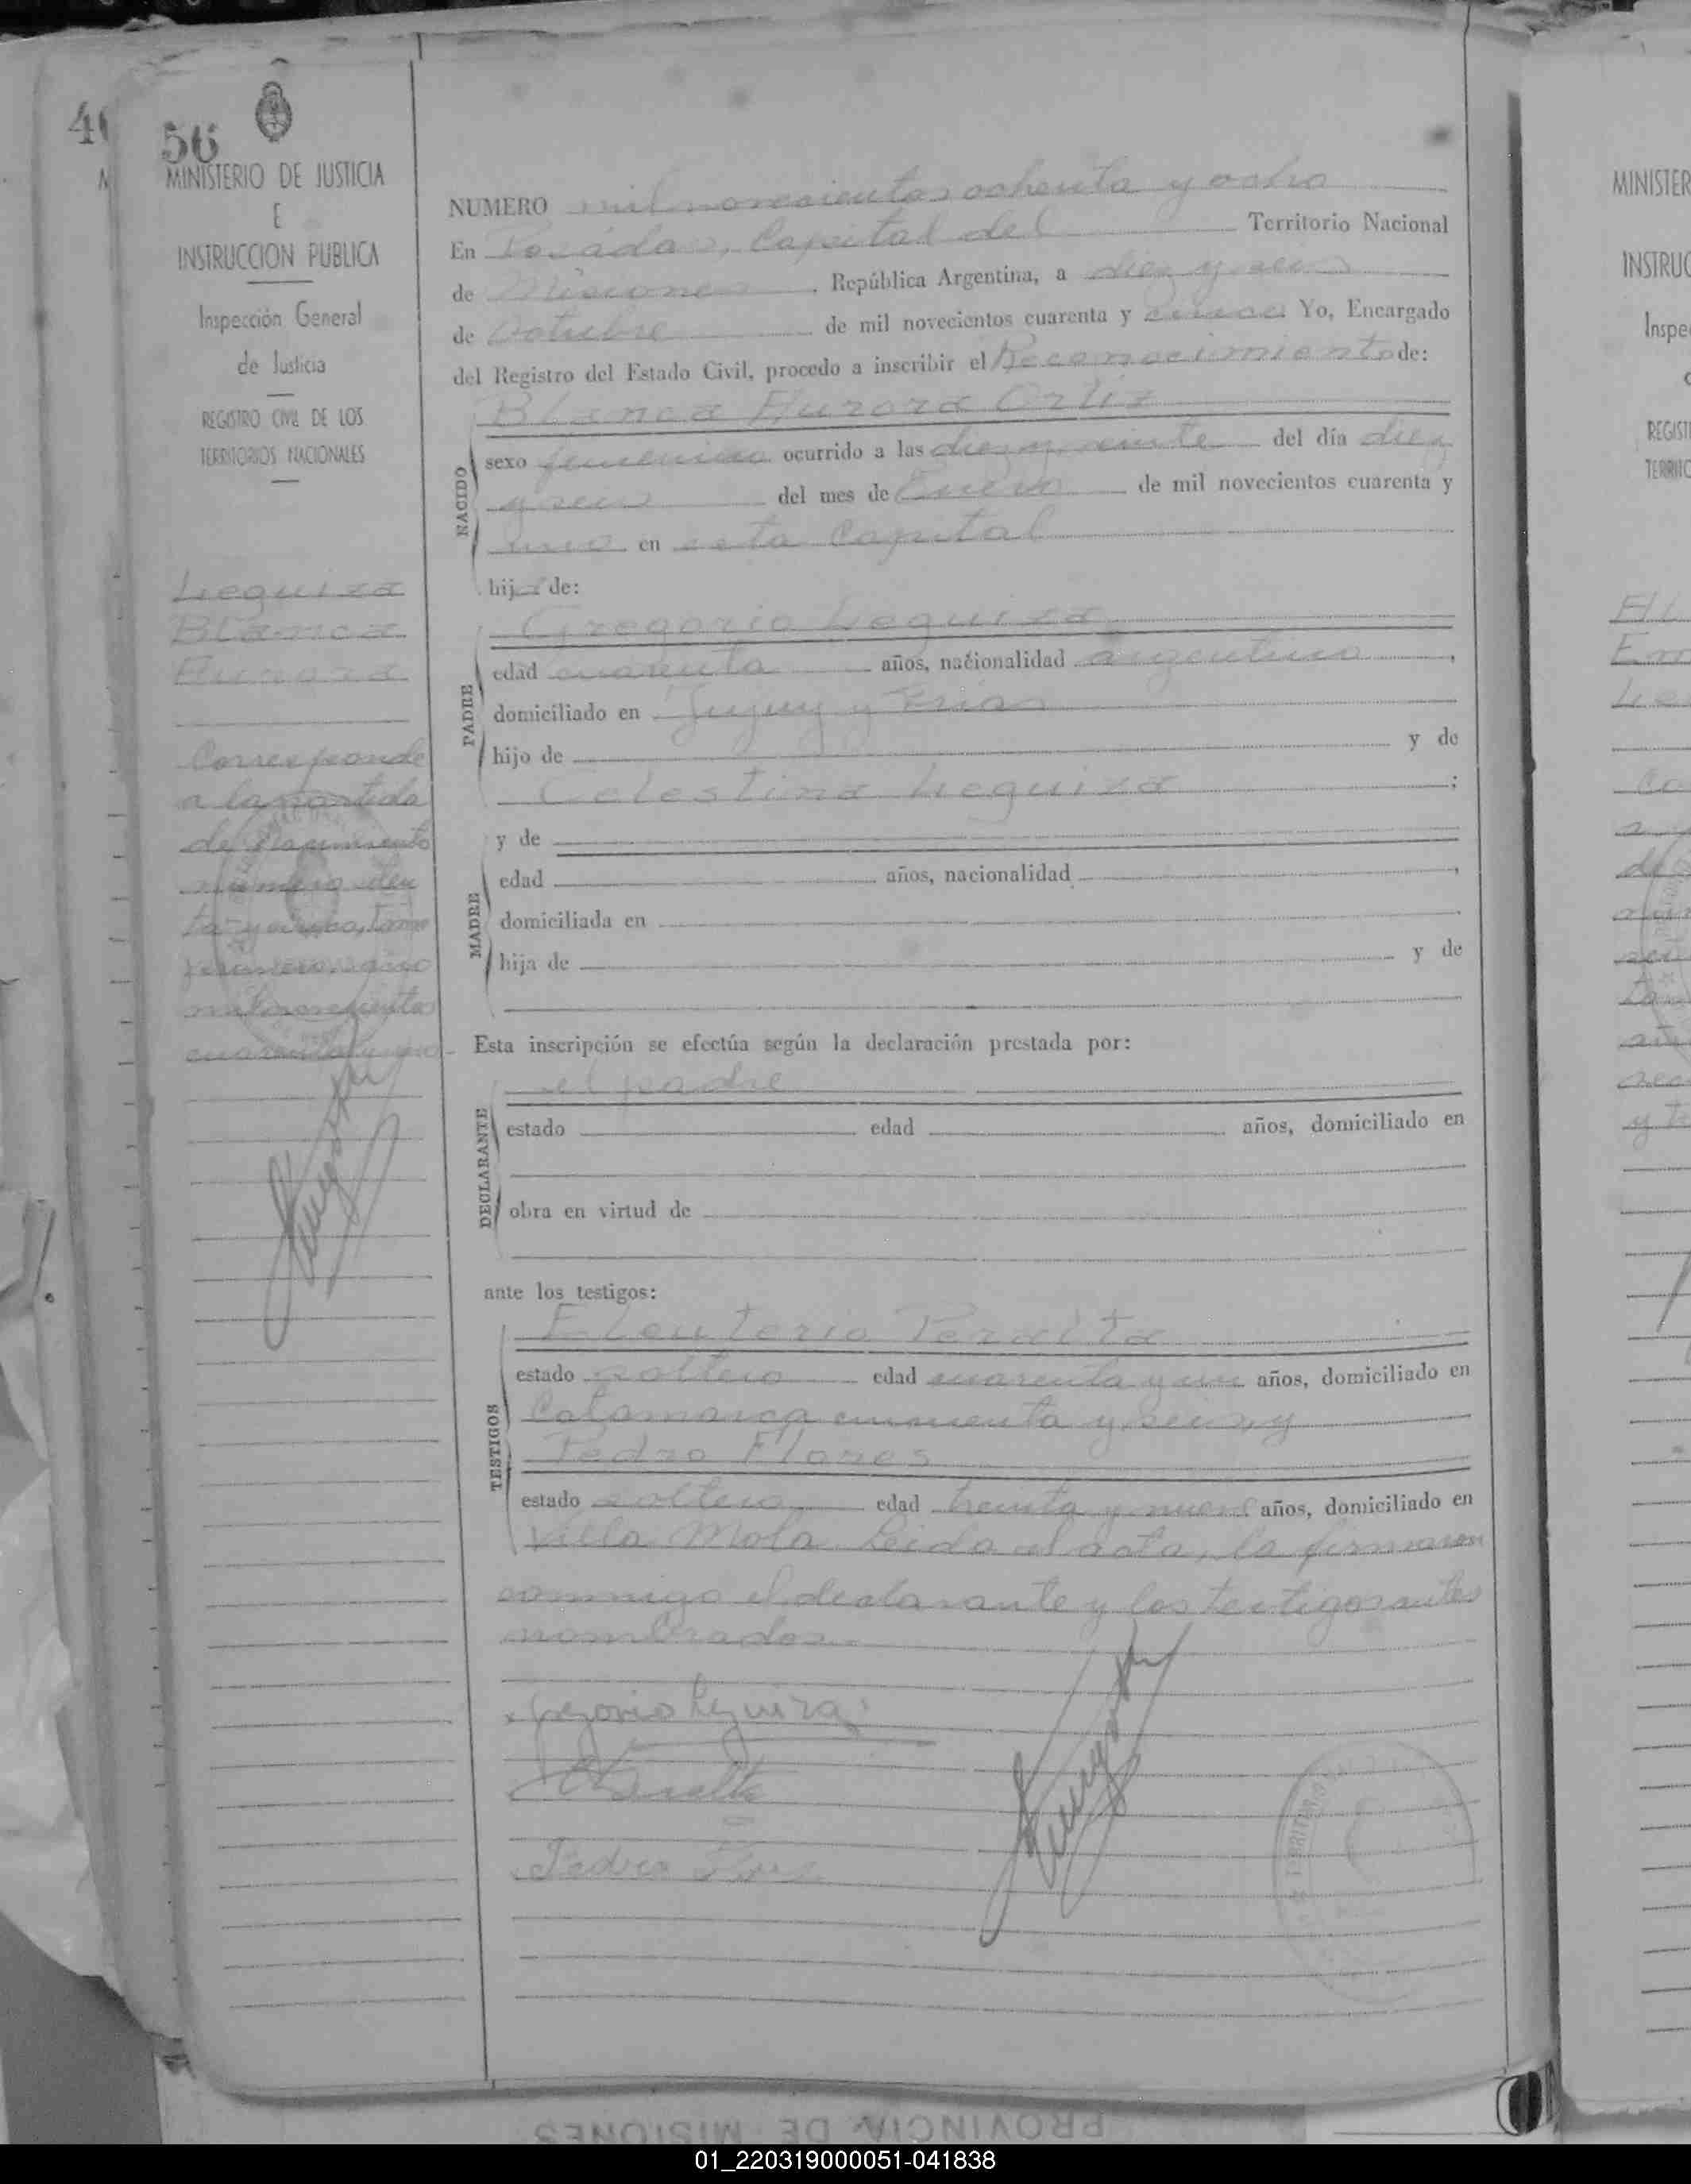 56
MINISTERIO DE JUSTICIA
E
INSTRUCCION PUBLICA
Inspección General
de Justicia
REGISTRO CIVIL DE LOS
TERRITORIOS NACIONALES
Leguiza
Blanca
Aurora
Corresponde
a la partida
de Nacimiento
número
ta y ocho, tomo
primero, año
mil novecientos
cuarenta y uno
NUMERO mil novecientos ochenta y ocho
En Posadas, Capital del Territorio Nacional
de Misiones, República Argentina, a diez y seis
de Octubre de mil novecientos cuarenta y cinco Yo, Encargado
del Registro del Estado Civil, procedo a inscribir el Reconocimiento de:
NACIDO
Blanca Aurora Ortiz
sexo femenino ocurrido a las diez y veinte del día diez
y seis del mes de Enero de mil novecientos cuarenta y
uno en esta Capital
hija de:
PADRE
Gregorio Leguiza
edad cuarenta años, nacionalidad argentino,
domiciliado en Jujuy y Frias
hijo de y de
Celestina Leguiza;
MADRE
y de
edad años, nacionalidad,
domiciliada en
hija de y de
Esta inscripción se efectúa según la declaración prestada por:
DECLARANTE
el padre
estado edad años, domiciliado en
obra en virtud de
ante los testigos:
TESTIGOS
Eleuterio Peralta
estado soltero edad cuarenta y un años, domiciliado en
Catamarca cincuenta y seis, y
Pedro Flores
estado soltero, edad treinta y nueve años, domiciliado en
Villa Mola. Leida el acta, la firmaron
conmigo el declarante y los testigos antes
nombrados.
Gregorio Leguiza
Peralta
Pedro
TERRITORIO
PROVINCIA DE MISIONES
01_220319000051-041838